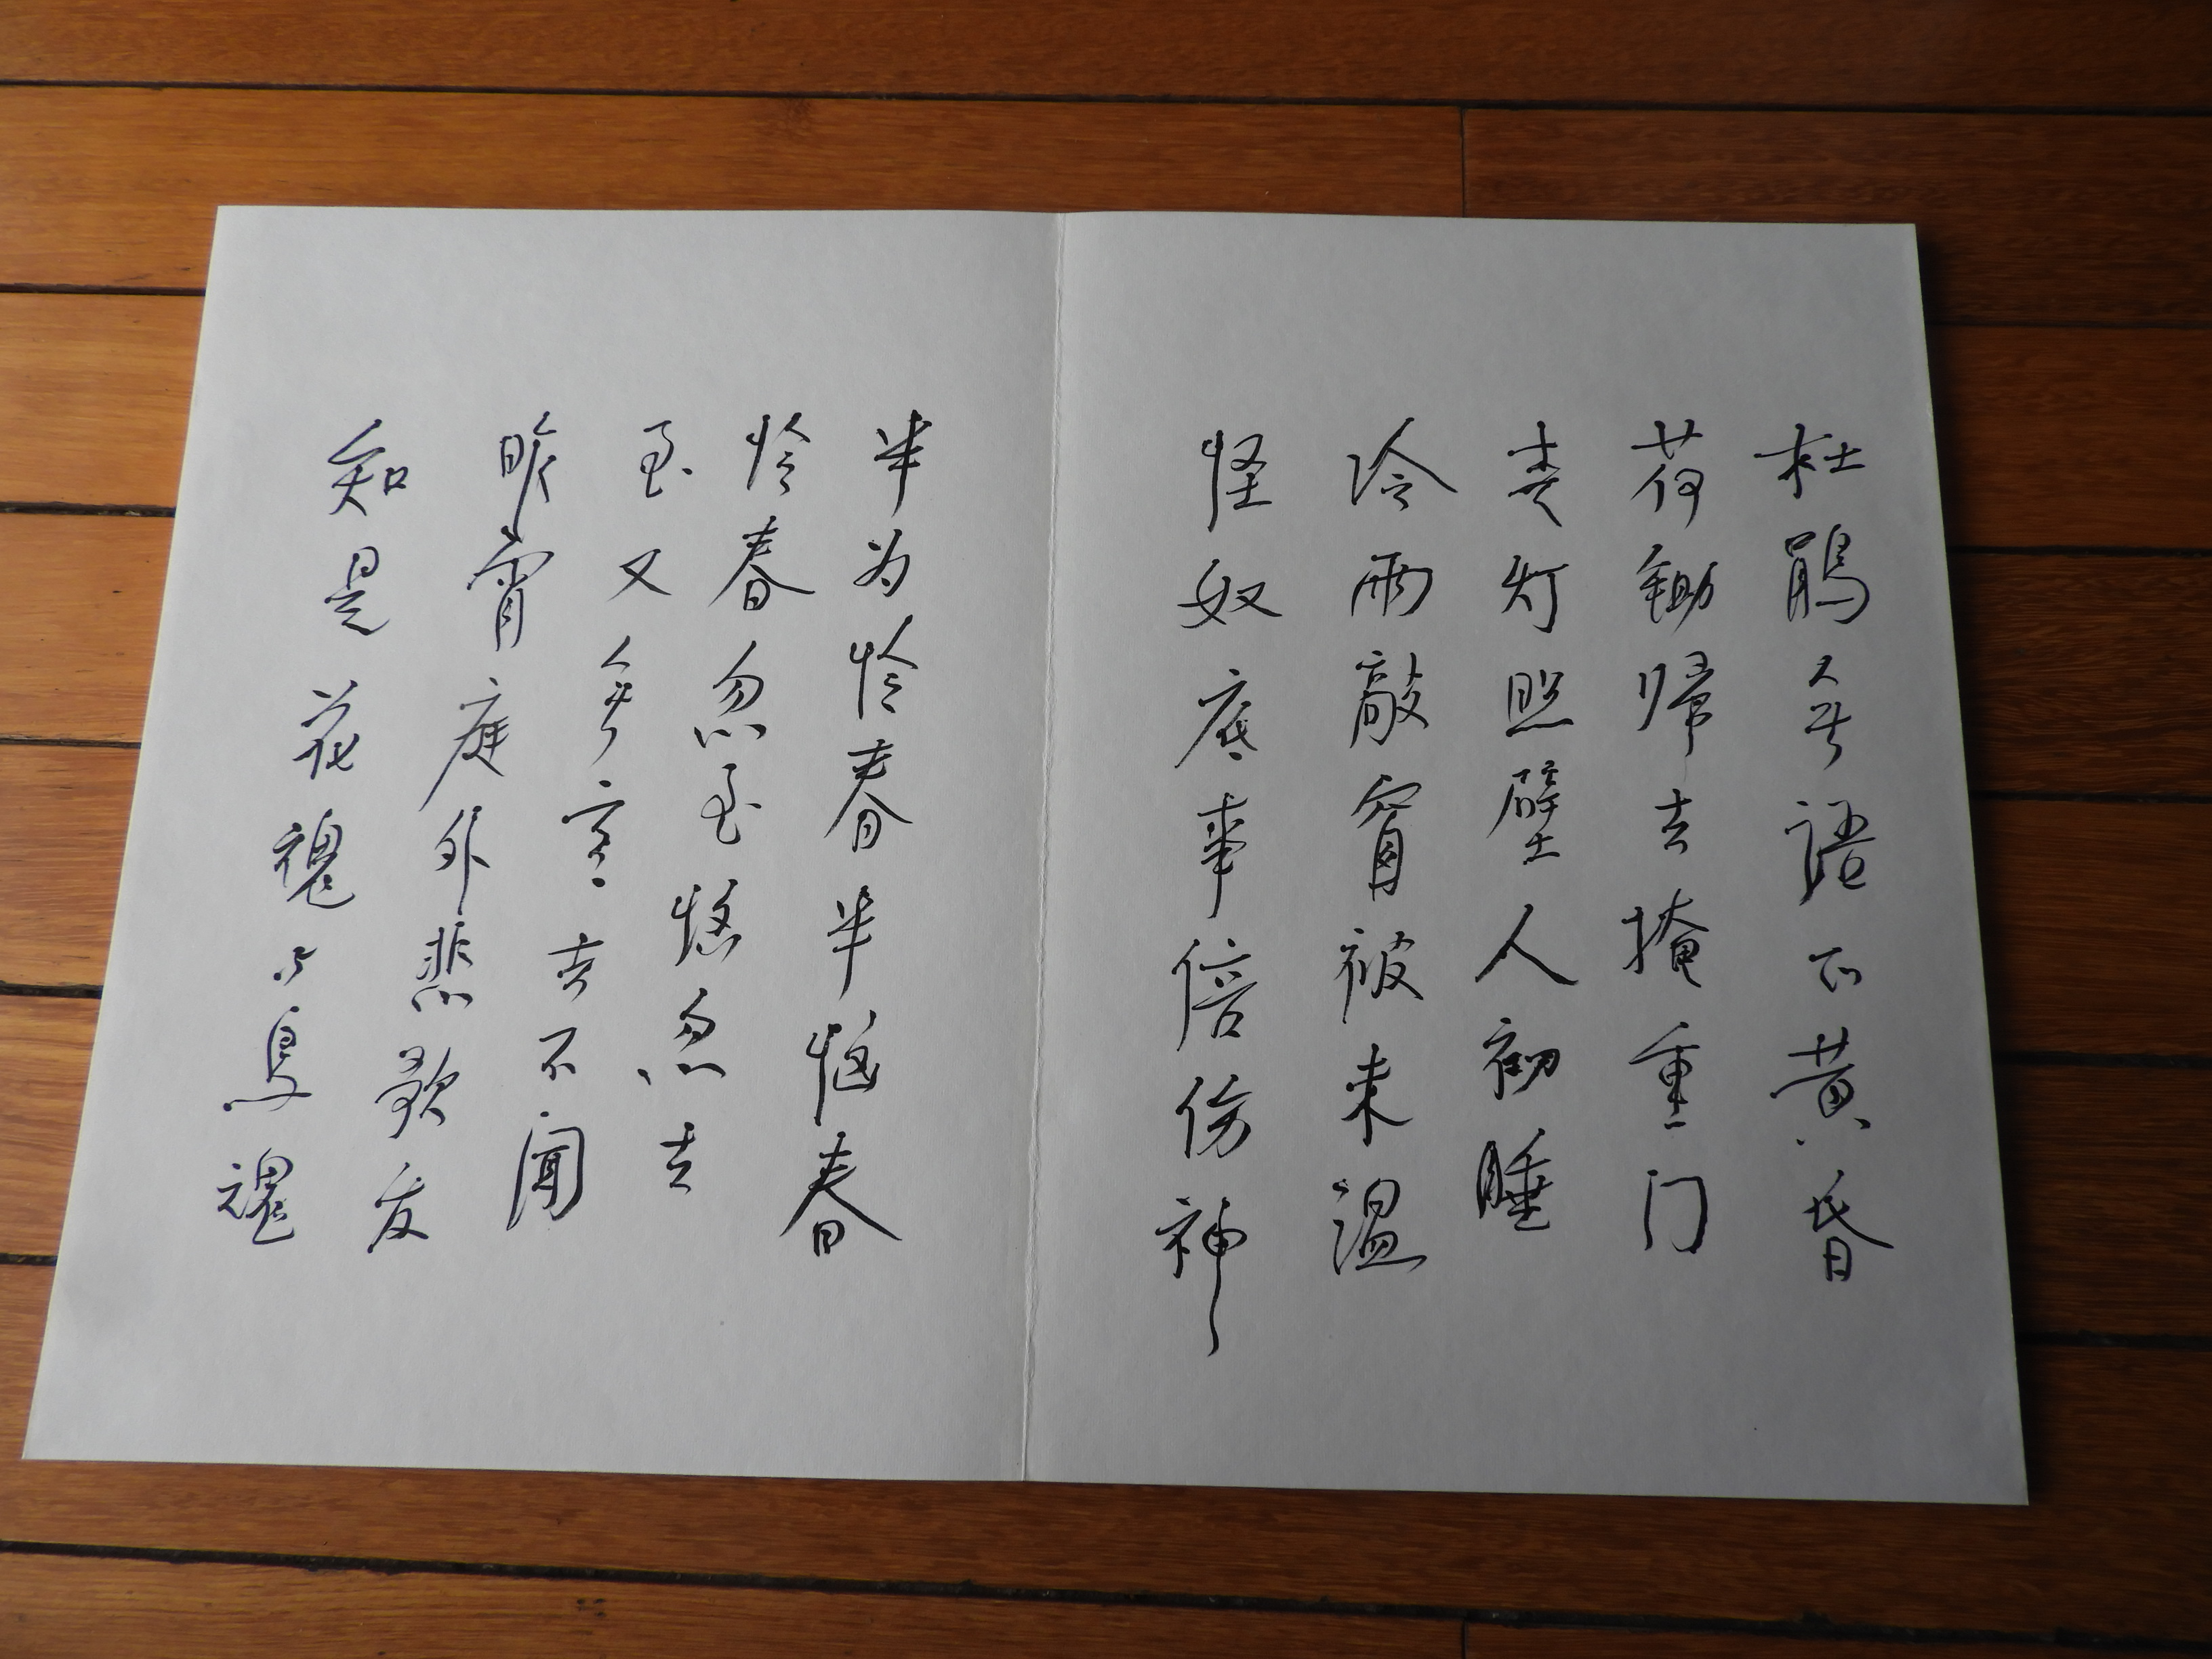 杜鹃无语正黄昏
荷锄归去掩重门
青灯照壁人初睡
冷雨敲窗被未温
怪奴底事倍伤神
半为怜春半恼春
怜春忽至恼忽去
至又无言去不闻
昨宵庭外悲歌发
知是花魂与鸟魂